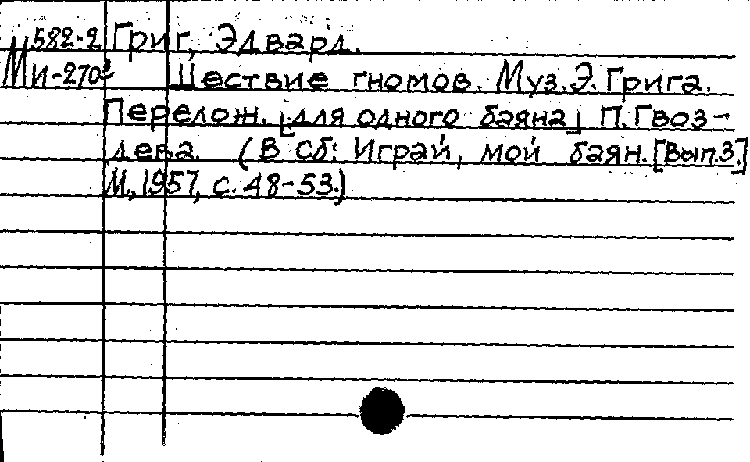 М 582-2 Григ, Эдвард.
Ми-270³ Шествие гномов. Муз. Э. Грига.
Перелож. [для одного баяна] П. Гвоз-
дева. (В сб: Играй, мой баян. [Вып.3.]
М., 1957, с. 48-53.)